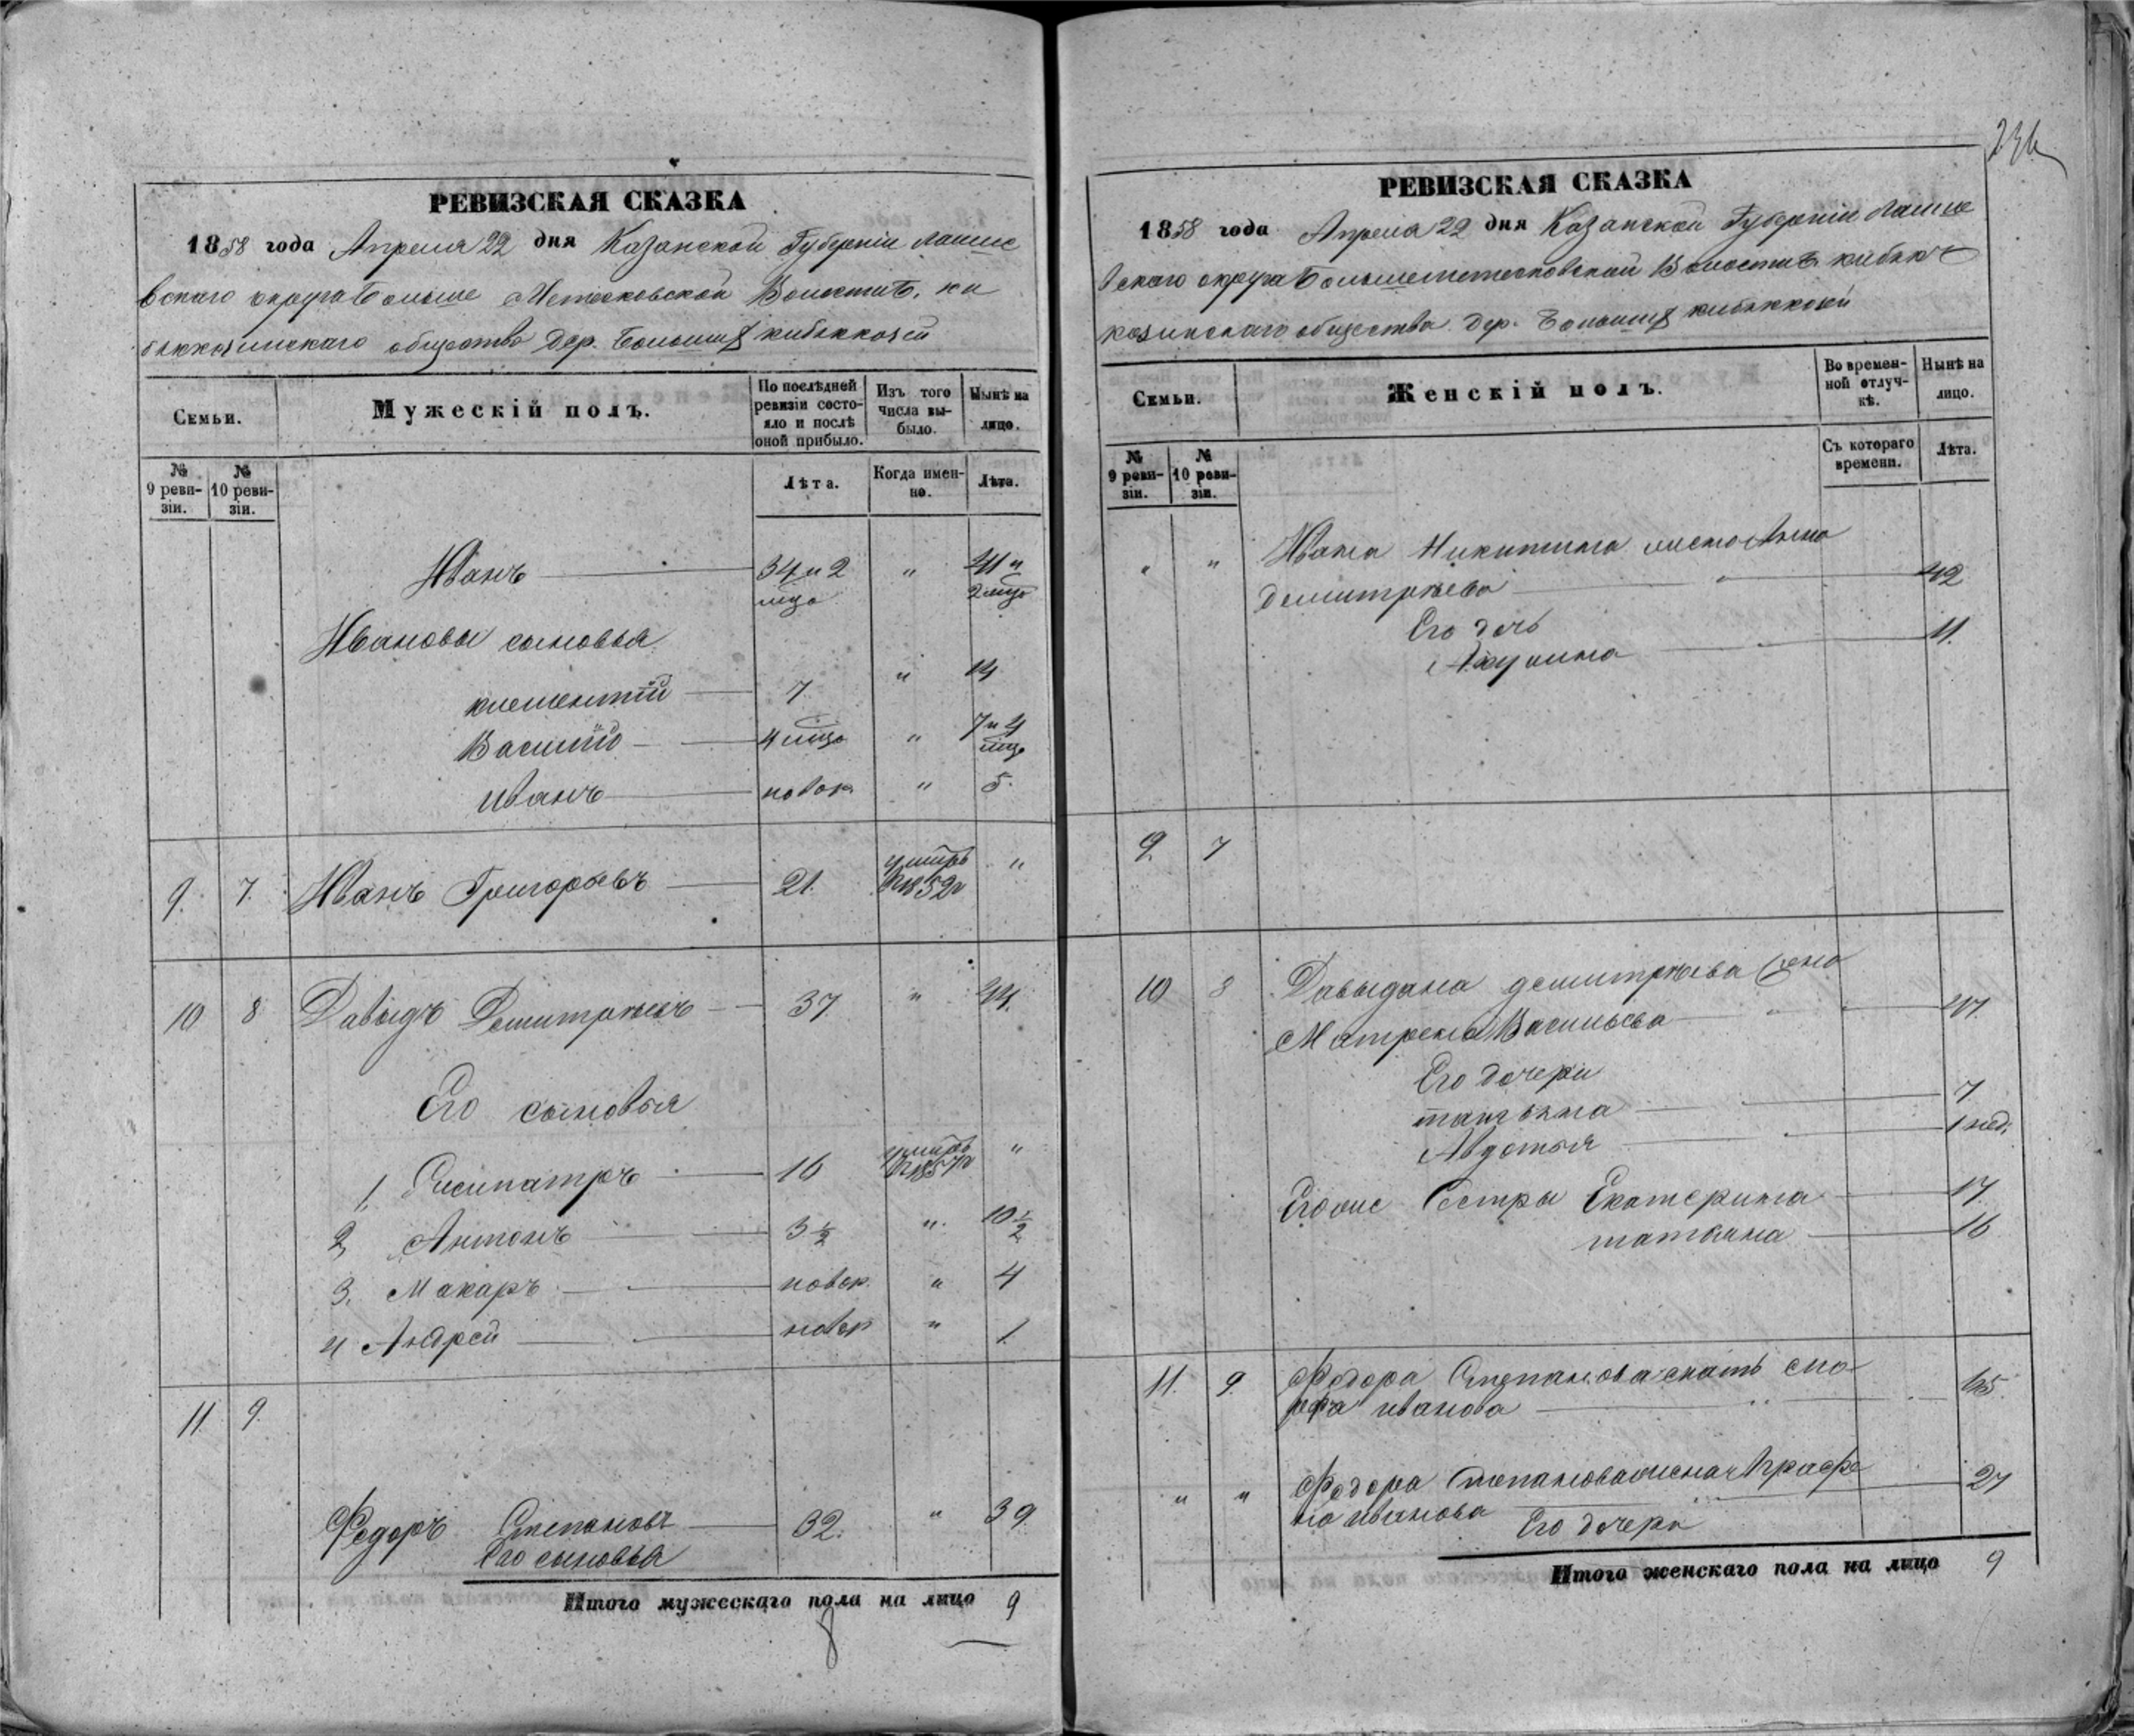 236
РЕВИЗСКАЯ СКАЗКА
1858 года Апреля 22 дня Казанской Губернiи Лаише
вскаго округа Больше Метесковской Волости, ки
бяккозинскаго общества дер. Большихъ кибяккозей
Семьи.
Мужескiй полъ.
По послѣдней ревизiи состояло и послѣ оной прибыло.
Изъ того числа выбыло.
Нынѣ на лицо.
№ 9 ревизiи.
№ 10 ревизiи.
Лѣта.
Когда именно.
Лѣта.
Иванъ 34 и 2 мцо " 41 и 2 мцо
Ивановы сыновья
клементiй 7 " 14
Василiй 4 мцо " 7 и 4 мцо
иванъ новор. " 5.
9. 7. Иванъ Григорьевъ 21. умеръ 1852 "
10 8 Давыдъ Демитрiевъ 37 " 44.
Его сыновья
1. 16 умеръ 1857 "
2, Антонъ 3 1/2 " 10 1/2
3. Макаръ новор. " 4
4 Андрей новор " 1.
11 9.
Федоръ Степановъ 32. " 39
Его сыновья
Итого мужескаго пола на лицо 9
8
РЕВИЗСКАЯ СКАЗКА
1858 года Апреля 22 дня Казанской Губернiи Лаише
вскаго округа Большеметесковской Волости кибяк
козинскаго общества. Дер. Большихъ кибяккозей
Семьи.
Женскiй полъ.
Во временной отлучкѣ.
Нынѣ на лицо.
№ 9 ревизiи.
№ 10 ревизiи.
Съ котораго времени.
Лѣта.
" " Ивана Никитина Анна
Демитрiева " 42
Его дочь
Акулина 11.
9. 7
10 8 Давыдана демитрiева жена
Матрена Васильева " 47.
Его дочери
татьяна 7
Авдотья 1 нед.
Сестры Екатерина 17.
татьяна 16
11. 9. Федора Степанова мать
иванова " 65.
" " Федора Степанова жена Аграфе
на иванова 27
Его дочери
Итого женскаго пола на лицо 9